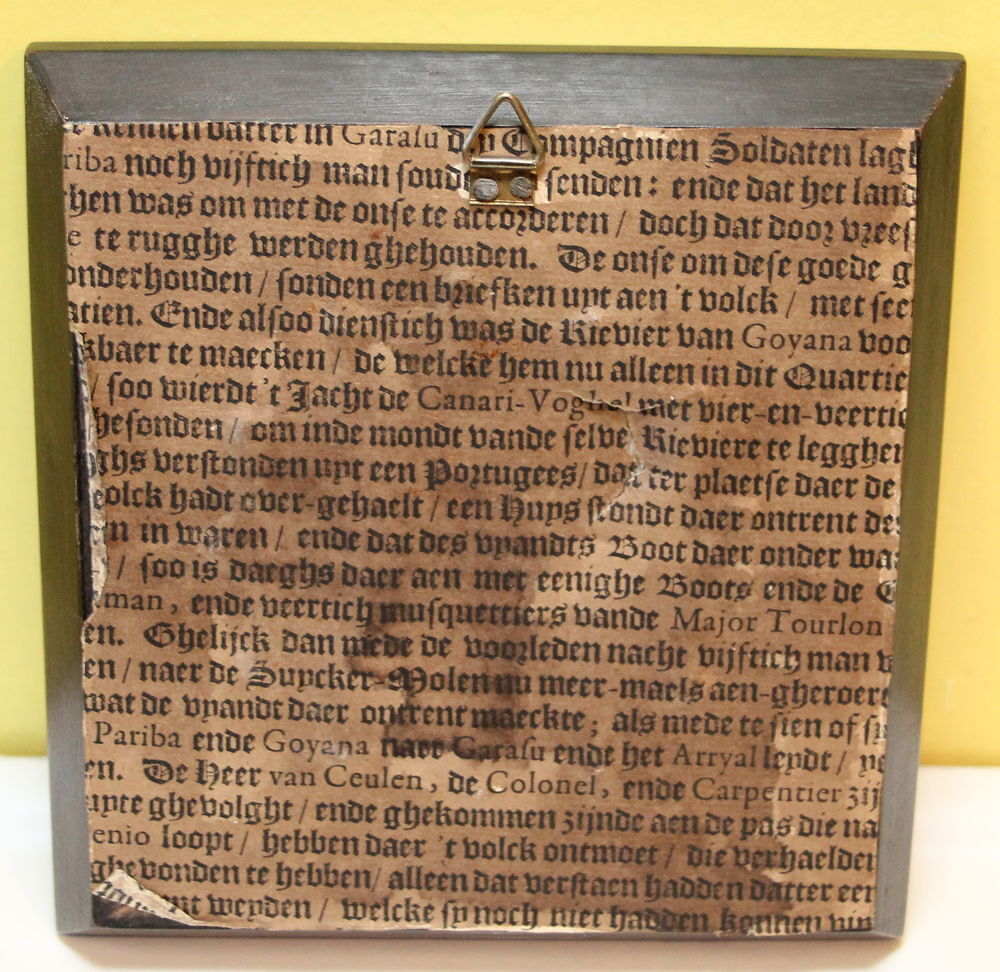 kennen datter in Garasu dry Compagnien Soldaten lagh
riba noch vijftich man soude senden: ende dat het land
hen was om met de onse te accorderen / doch dat door vrees
e te rugghe werden ghehouden. De onse om dese goede g
onderhouden / sonden een briefken uyt aen 't volck / met see
atien. Ende alsoo dienstich was de Rievier van Goyana voo
kbaer te maecken / de welcke hem nu alleen in dit Quartie
/ soo wierdt 't Jacht de Canari-Voghel met vier-en-veertic
hesonden / om inde mondt vande selve Rieviere te legghen
ghs verstonden uyt een Portugees / dat ter plaetse daer de
volck hadt over-gehaelt / een Huys stondt daer ontrent de
in waren / ende dat des vyandts Boot daer onder wa
/ soo is daeghs daer aen met eenighe Boots ende de C
man, ende veertich musquettiers vande Major Tourlon
en. Ghelijck dan mede de voorleden nacht vijftich man v
en / naer de Suycker-Molen nu meer-maels aen-gheroer
wat de vyandt daer ontrent maeckte; als mede te sien of s
Pariba ende Goyana naer Garasu ende het Arryal leydt /
en. De Heer van Ceulen, de Colonel, ende Carpentier zij
uyte ghevolght / ende ghekommen zijnde aen de pas die na
enio loopt / hebben daer 't volck ontmoet / die verhaelden
ghevonden te hebben / alleen dat verstaen hadden datter een
weyden / welcke sy noch niet hadden konnen vin